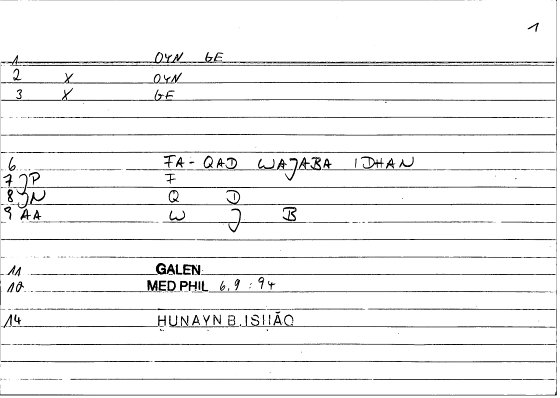 1
1 OYN GE
2 X OYN
3 X GE
6 FA-QAD WAJABA IDHAN
7 JP F
8 JN Q D
9 AA W J B
11 GALEN
10 MED PHIL 6,9 : 94
14 HUNAYN B.ISHĀQ